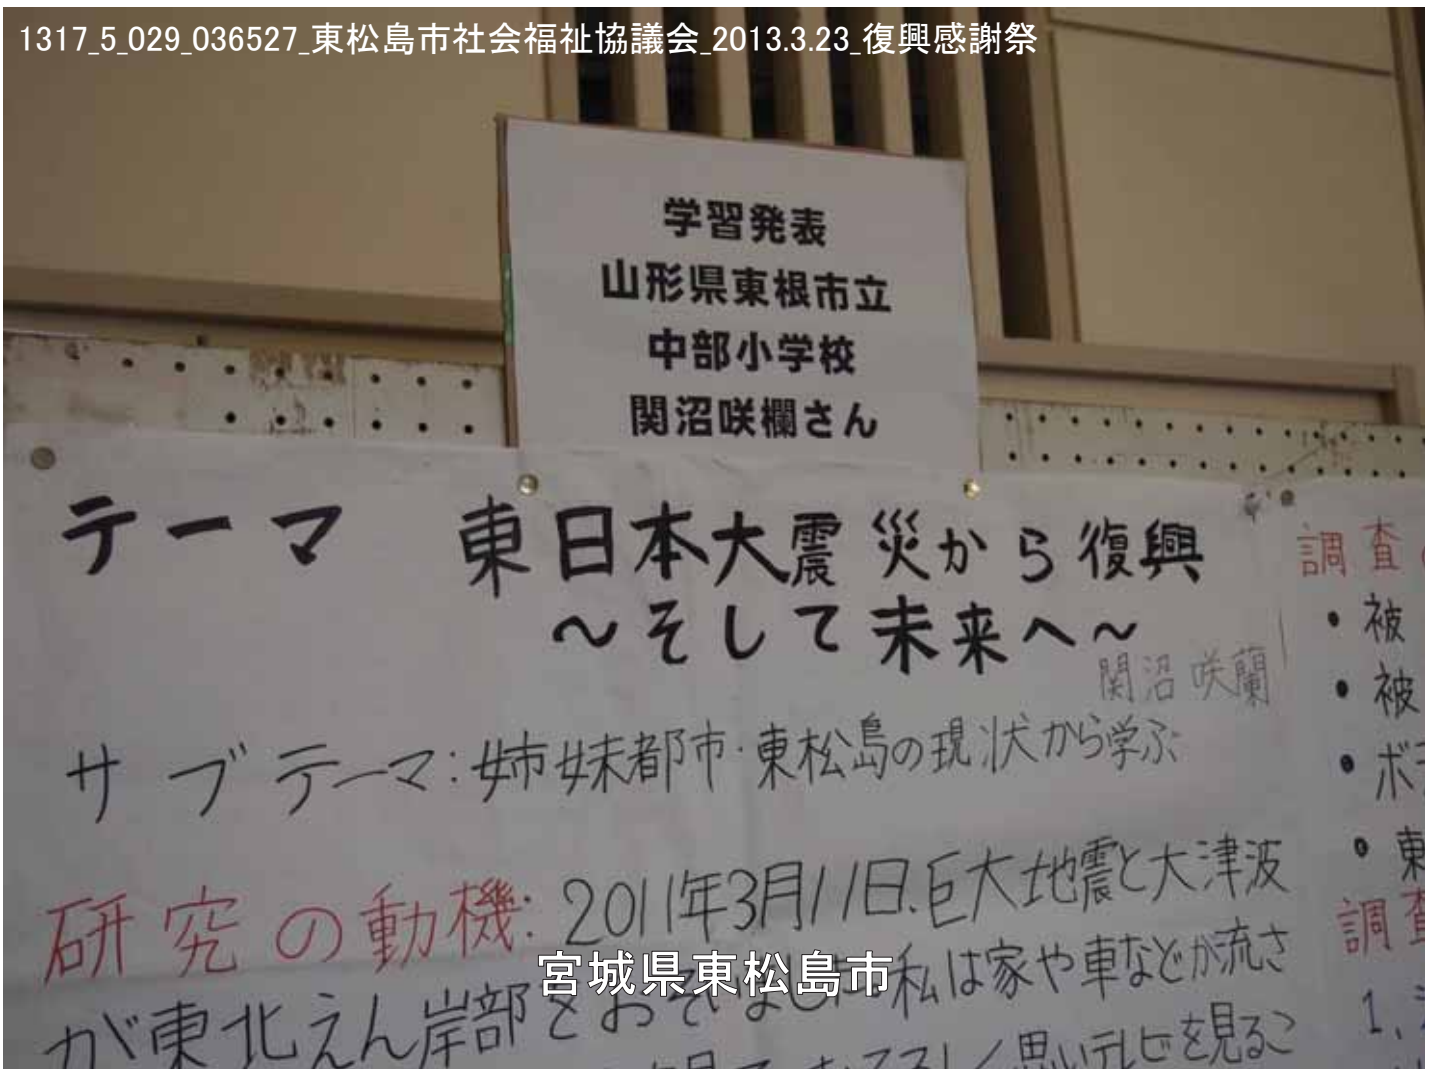 1317_5_029_036527_東松島市社会福祉協議会_2013.3.23_復興感謝祭
学習発表
山形県東根市立
中部小学校
関沼咲欄さん
テーマ 東日本大震災から復興
～そして未来へ～
関沼咲蘭
サブテーマ:姉妹都市・東松島の現状から学ぶ
研究の動機:2011年3月11日.巨大地震と大津波
が東北えん岸部をおそいました。私は家や車などが流さ
思いテレビを見るこ
調査
・被
・被
・ボラ
・東
調査
1.
宮城県東松島市